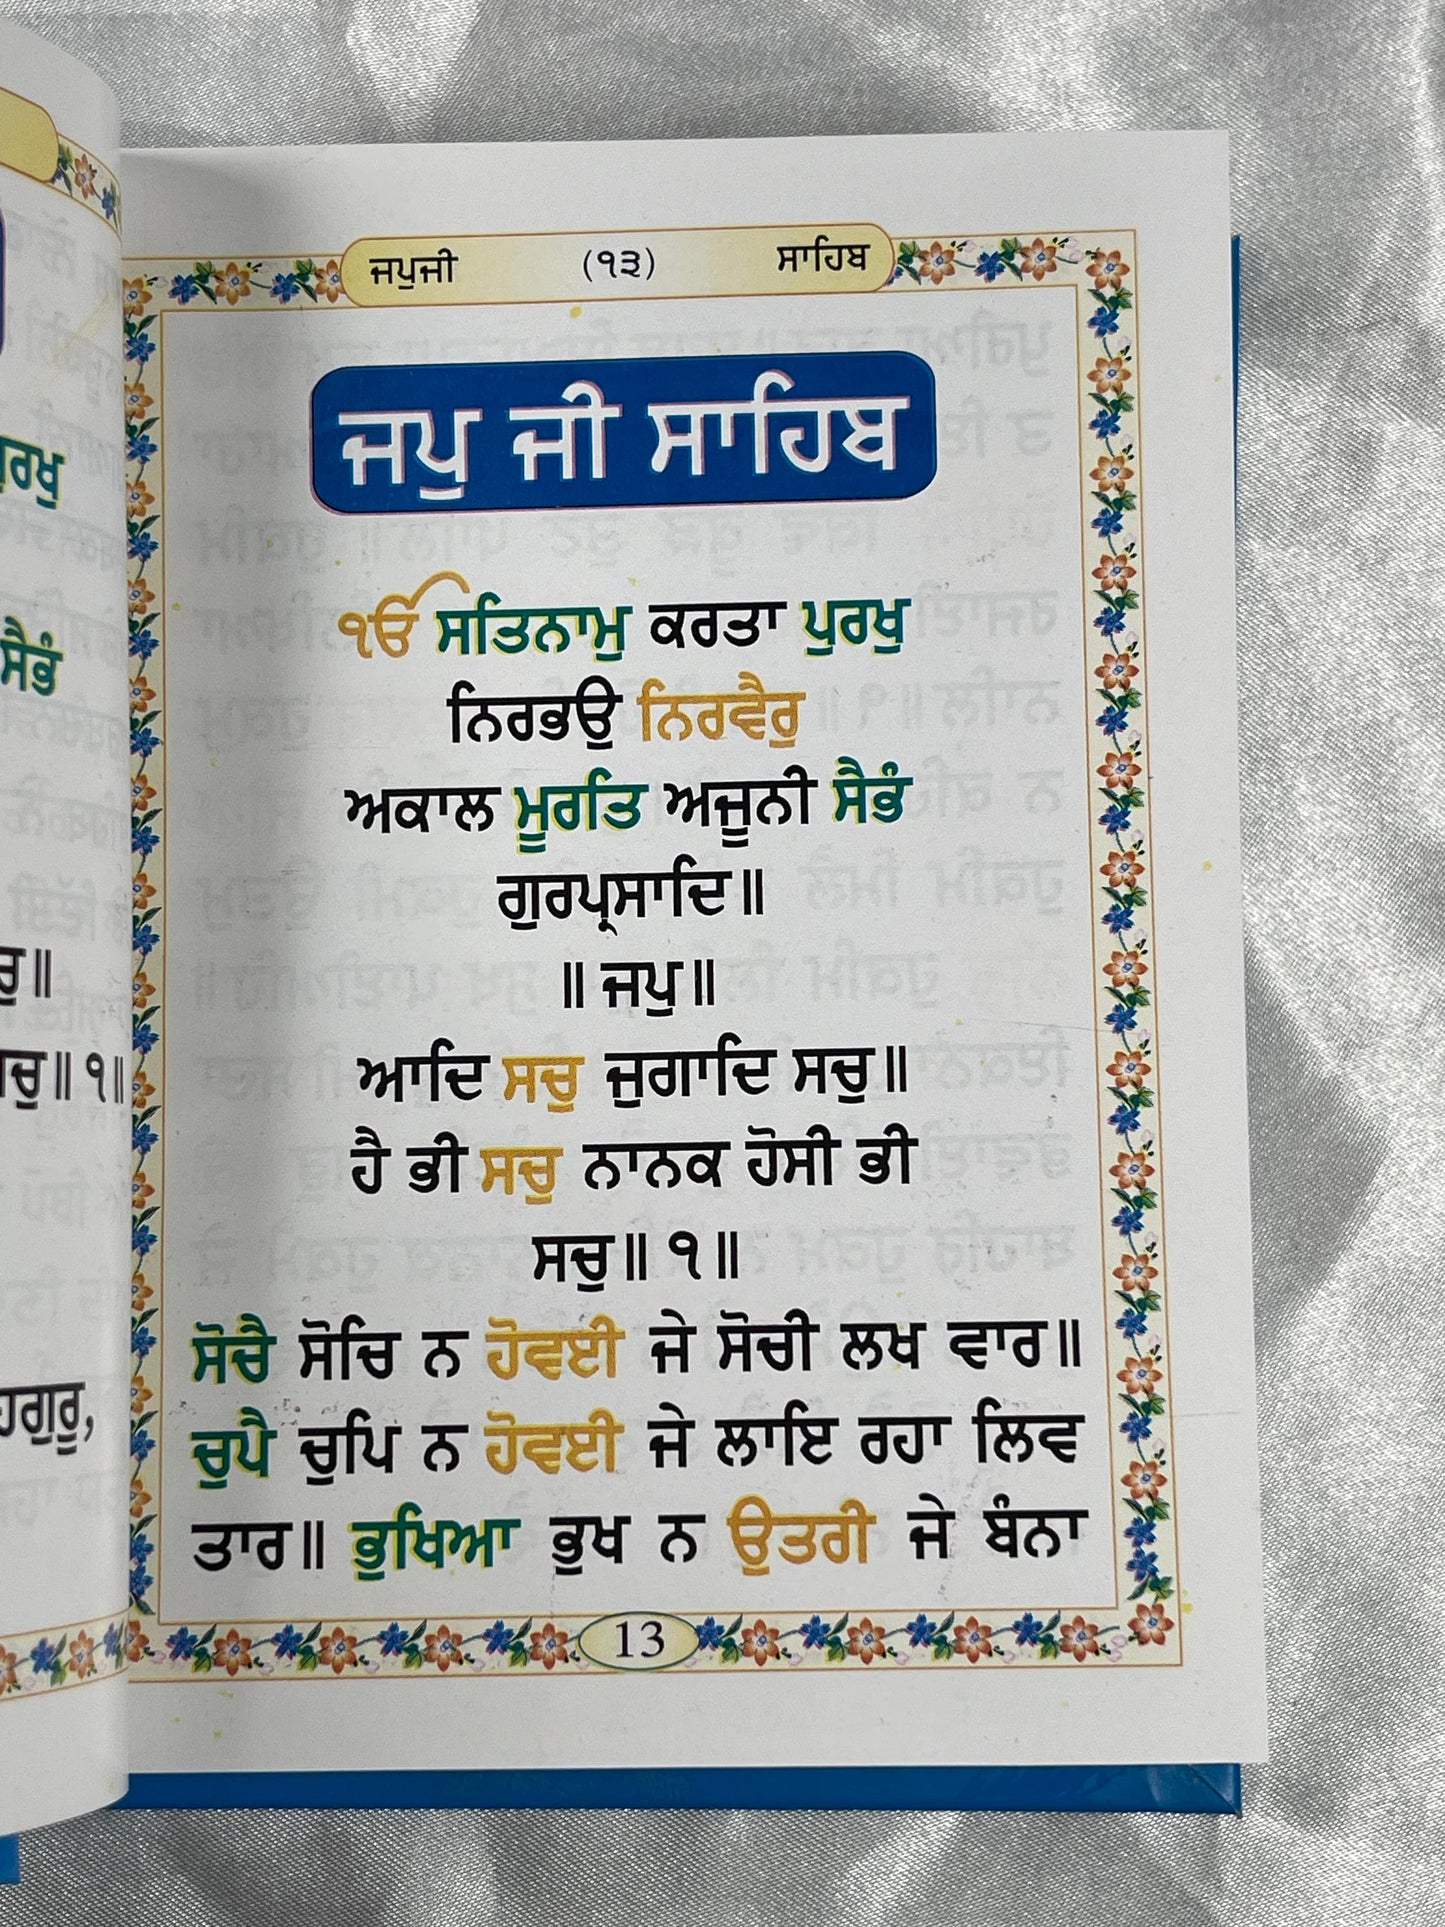 ਜਪੁਜੀ (੧੩) ਸਾਹਿਬ
ਜਪੁ ਜੀ ਸਾਹਿਬ
ੴ ਸਤਿਨਾਮੁ ਕਰਤਾ ਪੁਰਖੁ
ਨਿਰਭਉ ਨਿਰਵੈਰੁ
ਅਕਾਲ ਮੂਰਤਿ ਅਜੂਨੀ ਸੈਭੰ
ਗੁਰਪ੍ਰਸਾਦਿ॥
॥ ਜਪੁ॥
ਆਦਿ ਸਚੁ ਜੁਗਾਦਿ ਸਚੁ॥
ਹੈ ਭੀ ਸਚੁ ਨਾਨਕ ਹੋਸੀ ਭੀ
ਸਚੁ॥ ੧॥
ਸੋਚੈ ਸੋਚਿ ਨ ਹੋਵਈ ਜੇ ਸੋਚੀ ਲਖ ਵਾਰ॥
ਚੁਪੈ ਚੁਪਿ ਨ ਹੋਵਈ ਜੇ ਲਾਇ ਰਹਾ ਲਿਵ
ਤਾਰ॥ ਭੁਖਿਆ ਭੁਖ ਨ ਉਤਰੀ ਜੇ ਬੰਨਾ
13
ਸੈਭੰ